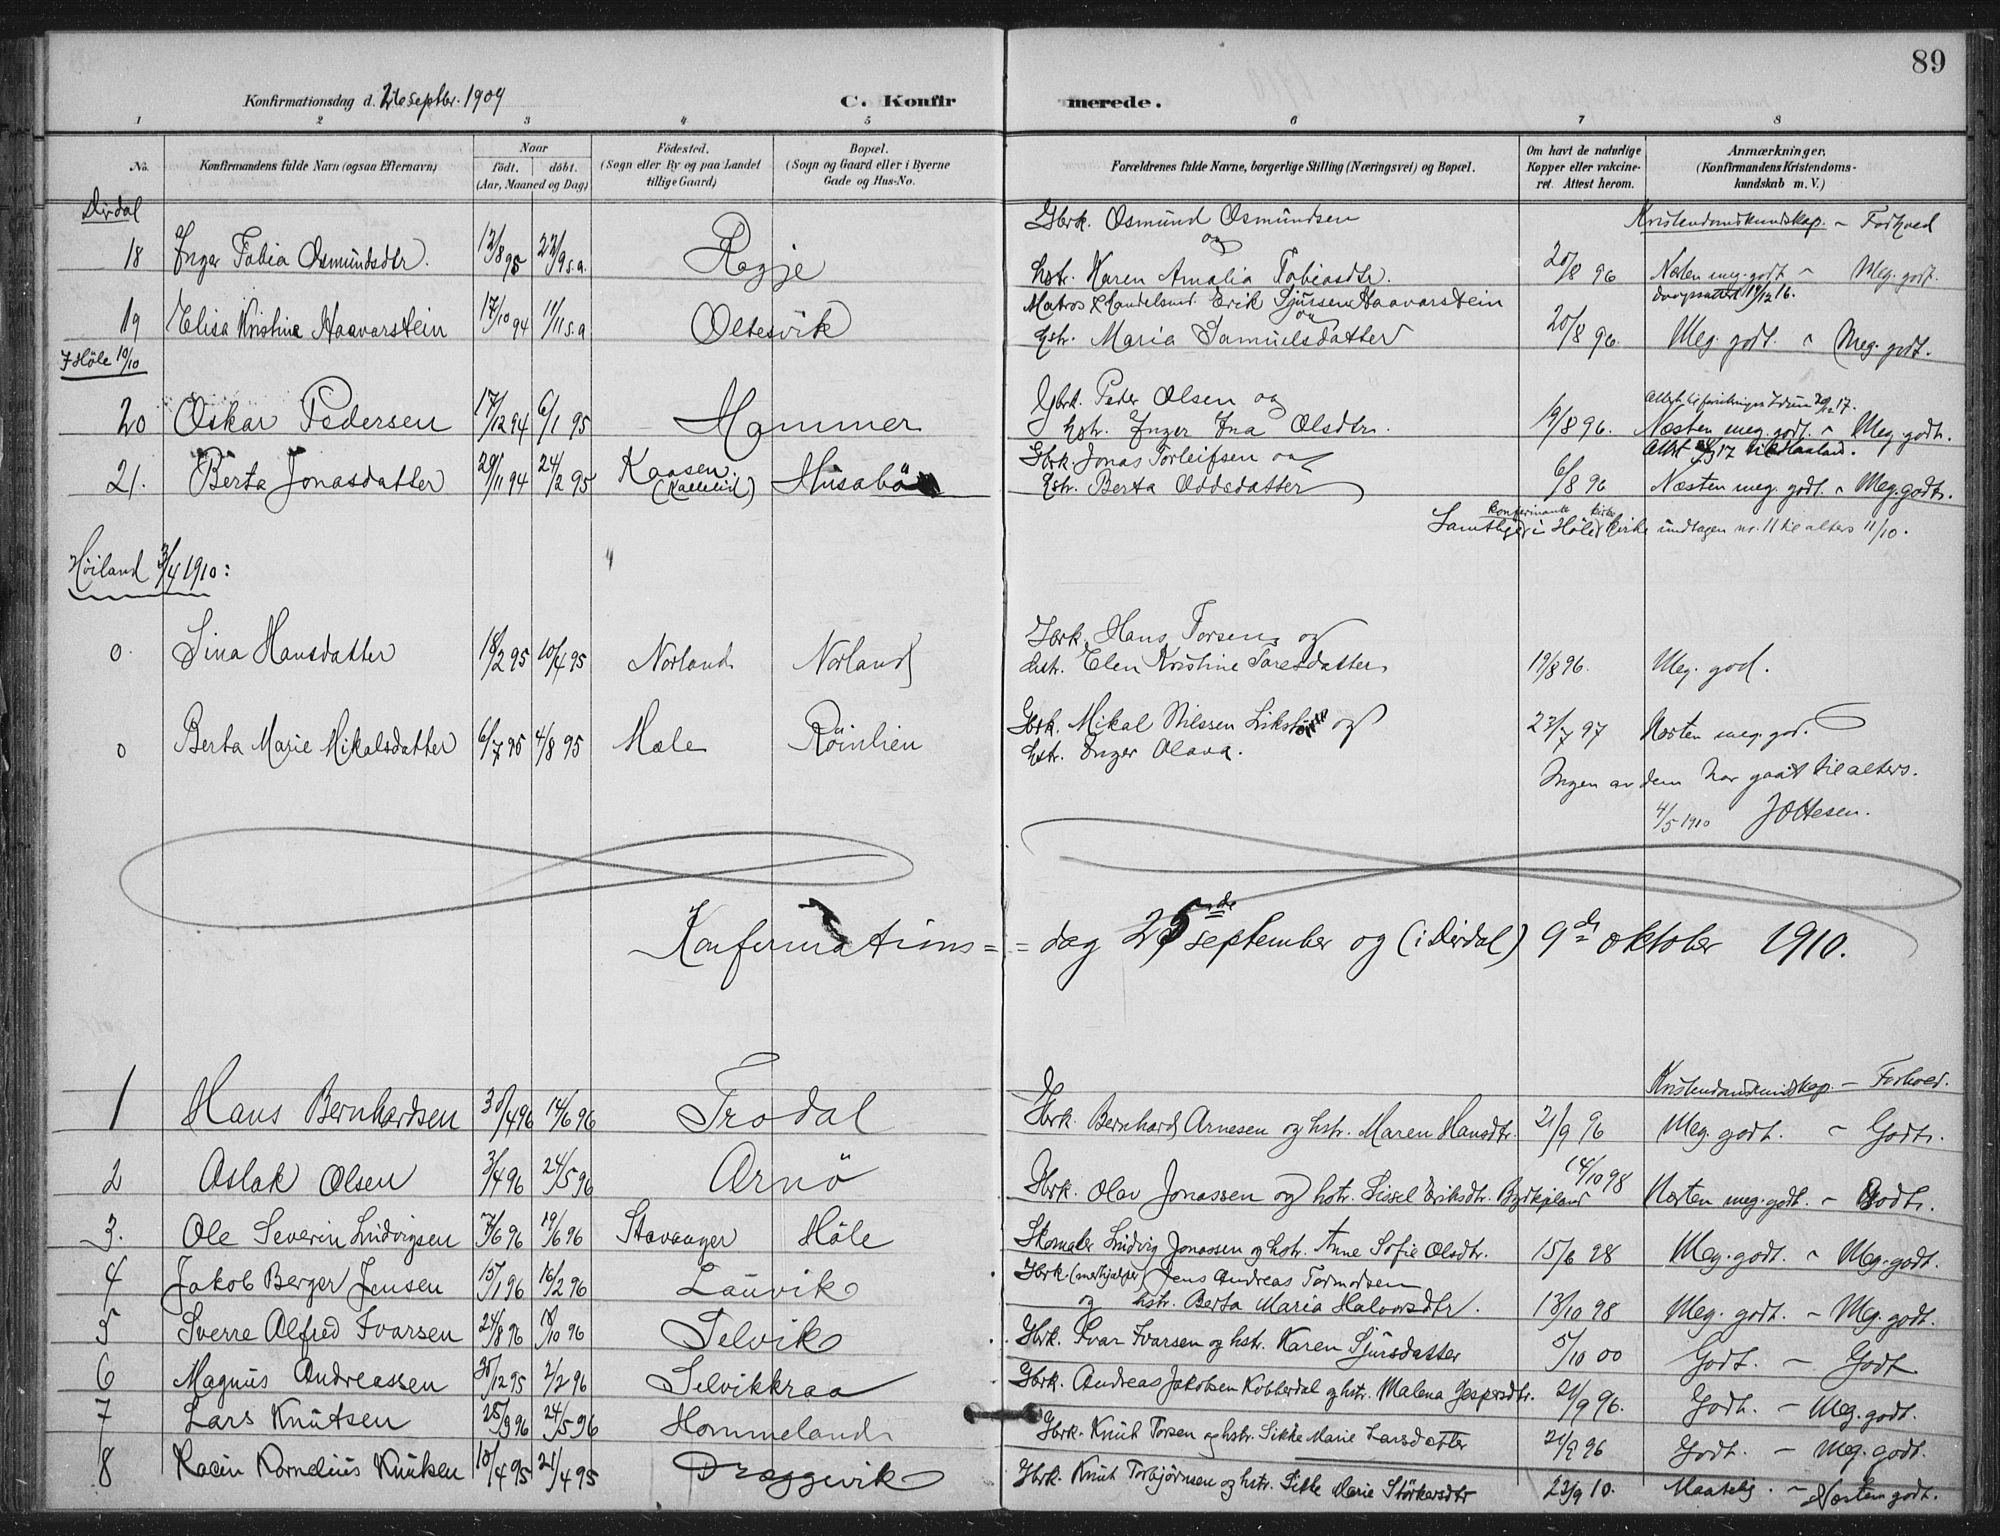 89
Konfirmationsdag d. 26 septbr. 1909 C. Konfirmerede.
1 2 3 4 5 6 7 8
No. Konfirmandens fulde Navn (ogsaa Efternavn) Naar født. døbt. (Aar, Maaned og Dag) Fødested. (Sogn eller By og paa Landet tillige Gaard) Bopæl. (Sogn og Gaard eller i Byerne Gade og Hus-No. Forældrenes fulde Navne, borgerlige Stilling (Næringsvei) og Bopæl. Om havt de naturlige Kopper eller vakcineret. Attest herom. Anmærkninger, (Konfirmandens Kristendomskundskab m. V.)
Dirdal
Gbrk. Osmund Osmundsen Kristendomskundskap. - Forhold
og
18 Inger Tobia Osmundsdtr. 12/8 95 22/9 s.a. Ragje hstr. Karen Amalia Tobiasdtr. 20/8 96 Næsten meg. godt - Meg. godt.
Matros & Handelsmd. Erik Sjursen Haavarstein 19/12 16.
og
19 Elisa Kristine Haavarstein 17/10 94 11/11 s.a Oltesvik hstr. Maria Samuelsdatter 20/8 96. Meg. godt. - Meg. godt.
I Høle 10/10
Gbrk. Peder Olsen og
20 Oskar Pedersen 17/12 94 6/1 95 Hammer hstr. Inger Ina Olsdtr. 19/8 96. Næsten meg. godt. - Meg. godt.
Gbrk. Jonas Torleifsen og
21. Berta Jonasdatter 29/11 94 24/2 95 Kaasen Husabö hstr. Berta Oddsdatter 6/8 96 Næsten meg. godt. - Meg. godt.
Samtlige konfirmante i Høle kirke undtagen no. 11 til alters 11/10.
Høiland 3/4 1910:
Gbrk. Hans Torsen og
0. Sina Hansdatter 18/2 95 10/4 95 Norland Norland hstr. Elen Kristine Taresdatter 19/8 96. Meg. god.
Gbrk. Mikal Nilssen og
0 Berta Marie Mikalsdatter 6/7 95 4/8 95 Høle Röinlien hstr. Inger Olava. 23/7 97 Næsten meg. god.
Ingen av dem har gaat til alters.
4/5 1910 J Ottesen.
Konfermations = = dag 25de september og (i Dirdal) 9de oktober 1910.
Kristendomskundskap. - Forhold.
1 Hans Bernhardsen 30/4 96 14/6 96 Trodal Gbrk. Bernhard Arnesen og hstr. Maren Hansdtr. 21/9 96 Meg. godt. - Godt.
2 Aslak Olsen 3/4 96 24/5 96 Arnö Gbrk. Olav Jonassen og hstr. Sissel Eriksdtr. 14/10 98 Næsten meg. godt. - Godt.
3. Ole Severin Ludvigsen 7/6 96 19/6 96 Stavanger Höle Skomaker Ludvig Jonassen og hstr. Anne Sofie Olsdtr. 15/6 98 Meg. godt. - Meg. godt.
Gbrk. Jens Andreas Tormodsen
4 Jakob Berger Jensen 15/1 96 16/2 96 Lauvik og hstr. Berta Maria Halvorsdtr. 13/10 98 Meg. godt. - Meg. godt.
5 Sverre Alfred Ivarsen 24/8 96 18/10 96 Selvik Gbrk. Ivar Ivarsen og hstr. Karen Sjursdatter 5/10 00 Godt. - Godt
6 Magnus Andreassen 30/12 95 2/2 96 Selvikkraa Gbrk. Andreas Jakobsen Kobberdal og hstr. Malena Jespersdtr. 21/9 96. Godt. - Meg. godt.
7 Lars Knutsen 25/3 96 24/5 96 Hommeland Gbrk. Knut Torsen og hstr. Sikke Marie Larsdatter 21/9 96 Godt. - Meg. godt.
8 Karin Kornelius Knutsen 10/4 95 21/4 95 Dreggevik Gbrk. Knut Torbjörnsen og hstr. Sikke Marie Störkersdtr 23/9 10. Maatelig. - Næsten godt.